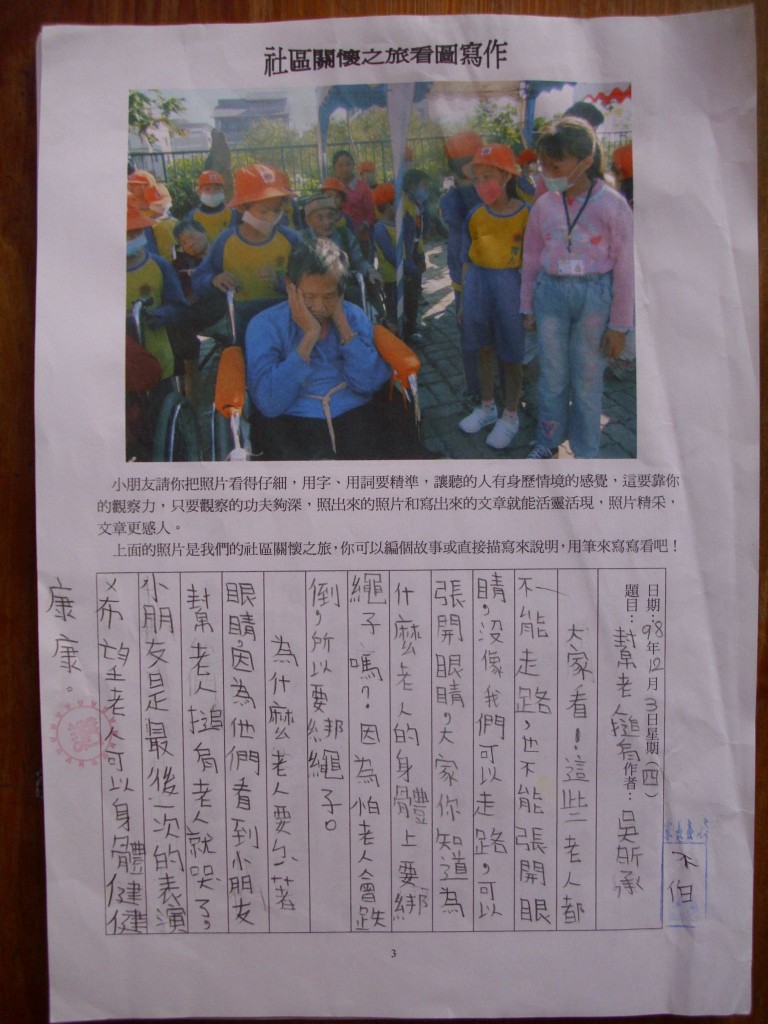 社區關懷之旅看圖寫作
小朋友請你把照片看得仔細，用字、用詞要精準，讓聽的人有身歷情境的感覺，這要靠你
的觀察力，只要觀察的功夫夠深，照出來的照片和寫出來的文章就能活靈活現，照片精采，
文章更感人。
上面的照片是我們的社區關懷之旅，你可以編個故事或直接描寫來說明，用筆來寫寫看吧！
日期：98年12月3日星期（四）
題目：幫老人搥肩作者：吳所承
大家看！這些老人都
不能走路，也不能張開眼
睛，沒像我們可以走路，可以
張開眼睛，大家你知道為
什麼老人的身體上要綁
繩子嗎？因為怕老人會跌
倒，所以要綁繩子。
為什麼老人要尒著
眼睛，因為他們看到小朋友
幫老人搥肩老人就哭了，
小朋友是最後一次的表演
希望老人可以身體健健
康康。
3